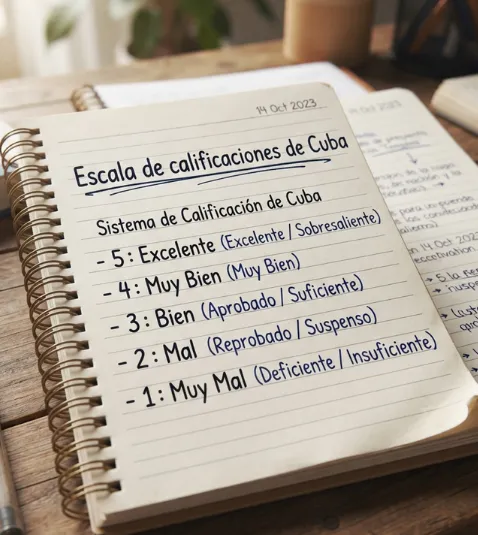 14 Oct 2023
Escala de calificaciones de Cuba
Sistema de Calificación de Cuba
- 5: Excelente (Excelente / Sobresaliente)
- 4: Muy Bien (Muy Bien)
- 3: Bien (Aprobado / Suficiente)
- 2: Mal (Reprobado / Suspenso)
- 1: Muy Mal (Deficiente / Insuficiente)
Oct 2023
14 Oct 202